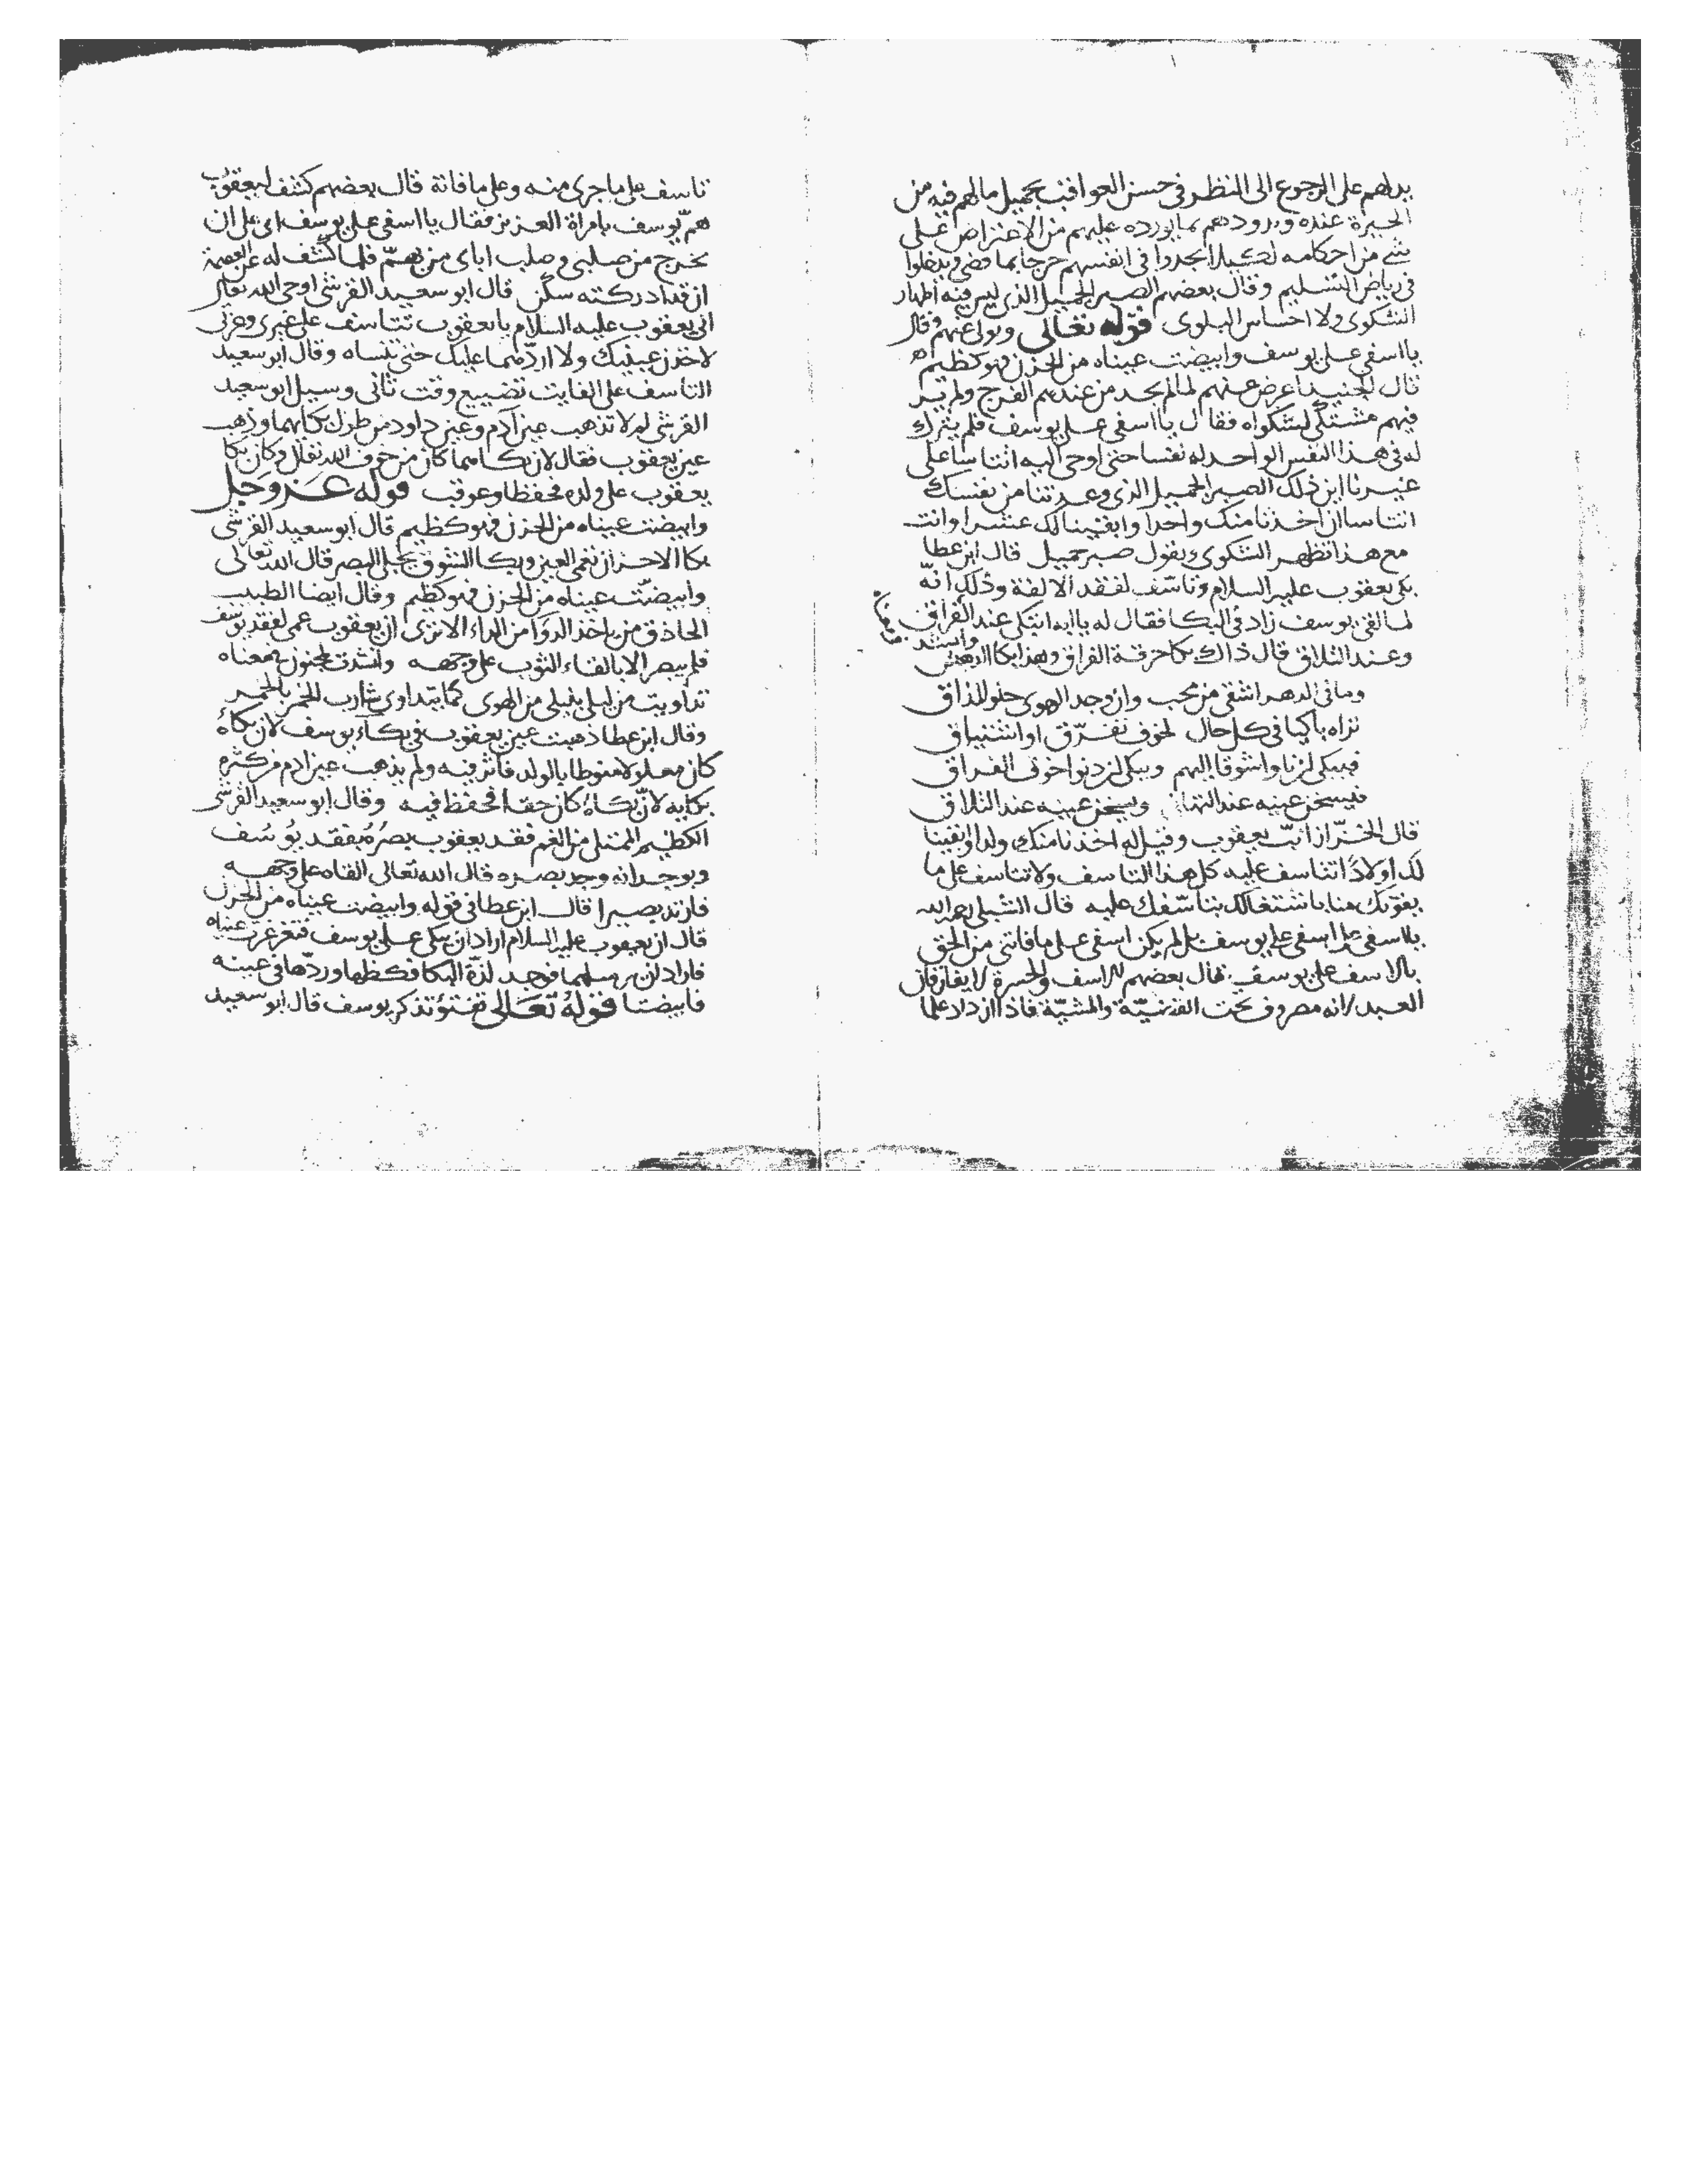 يدلهم على الرجوع الى النظر في حسن العواقب بجميل مالهم فيه من
الخيرة عنده وبرودهم بما يورده عليهم من الاعتراض على
شي من احكامه لكيلا يجدوا في انفسهم حرجا بما قضى ويدخلوا
في رياض التسليم وقال بعضهم الصبر الجميل الذي ليس فيه اظهار
الشكوى ولا احساس البلوى قوله تعالى وتولى عنهم وقال
يا اسفي على يوسف وابيضت عيناه من الحزن فهو كظيم
قال الجنيد اعرض عنهم لما لم يجد من عندهم الفرج ولم ير
فيهم مشتكى لشكواه فقال يا اسفى على يوسف فلم يترك
له في هذا النفس الواحد له نفسا حتى اوحى اليه اتتاسا على
غيرنا اين ذلك الصبر الجميل الذي وعدتنا من نفسك
اتتاسا ان اخذنا منك واحدا وابقينا لك عشرا وانت
مع هذا تظهر الشكوى وتقول صبر جميل قال ابن عطا
بكى يعقوب عليه السلام وتاسف لفقد الالفة وذلك انه
لما لقى يوسف زاد في البكا فقال له يا ابه ابتكى عند الفراق
وعند التلاق قال ذاك بكا حرقة الفراق وهذا بكا الدهش
وانشد
وما في الدهر اشقى من محب وان وجد الهوى حلو المذاق
تراه باكيا في كل حال لخوف تفرق او اشتياق
فيبكي ان ناوا شوقا اليهم ويبكي ان دنوا خوف الفراق
فيسخن عينه عند التنائي ويسخن عينه عند التلاق
قال الخراز انب يعقوب وقيل له اخذنا منك ولدا وابقينا
لك اولادا تتاسف عليه كل هذا التاسف ولا تتاسف على ما
يفوتك منا باشتغالك بتاسفك عليه قال الشبلي رحمه الله
يا اسفي على اسفي على يوسف بل لم يكن اسفي على ما فاتني من الحق
بالاسف على يوسف قال بعضهم الاسف والحسرة لا يفارقان
العبد لانه مصروف تحت القضية والمشية فاذا ازداد علما
تاسف على ما جرى منه وعلى ما فاته قال بعضهم كشف ليعقوب
هم يوسف بامراة العزيز فقال يا اسفي على يوسف اى على ان
يخرج من صلبي وصلب اباى من يهم فلما كشف له عن العصمة
ان قد ادركته سكن قال ابو سعيد القرشي اوحى الله تعالى
الى يعقوب عليه السلام يا يعقوب تتاسف على غيرى وعزتى
لاخذن عينيك ولا اردهما عليك حتى تنساه وقال ابو سعيد
التاسف على الفايت تضييع وقت ثانى وسيل ابو سعيد
القرشي لم لا تذهب عين آدم وعين داود من طول بكايهما وذهب
عين يعقوب فقال لان بكاهما كان من خوف الله تعالى وكان بكا
يعقوب على ولده فحفظا وعوقب قوله عز وجل
وابيضت عيناه من الحزن فهو كظيم قال ابو سعيد القرشي
بكا الاحزان تعمى العين وبكا الشوق يجلى البصر قال الله تعالى
وابيضت عيناه من الحزن فهو كظيم وقال ايضا الطبيب
الحاذق من ياخذ الدوا من الداء الا ترى ان يعقوب عمى لفقد يوسف
فلم يبصر الا بالقاء الثوب على وجهه وانشدت لمجنون بمعناه
تداويت من ليلى بليلى من الهوى كما يتداوى شارب الخمر بالخمر
وقال ابن عطا ذهبت عين يعقوب في بكاء يوسف لان بكاءه
كان معلولا منوطا بالولد فاثر فيه ولم يذهب عين ادم من كثرة
بكايه لان بكاه كان حقا فحفظ فيه وقال ابو سعيد القرشي
الكظيم الممتلى من الغم فقد يعقوب بصره بفقد يوسف
وبوجدانه وجد بصره قال الله تعالى القاه على وجهه
فارتد بصيرا قال ابن عطا في قوله وابيضت عيناه من الحزن
قال ان يعقوب عليه السلام اراد ان يبكى على يوسف فتغرغرت عيناه
فاراد ان يرسلهما فوجد لذة البكا فكظها وردها في عينه
فابيضتا قوله تعالى تفتؤ تذكر يوسف قال ابو سعيد